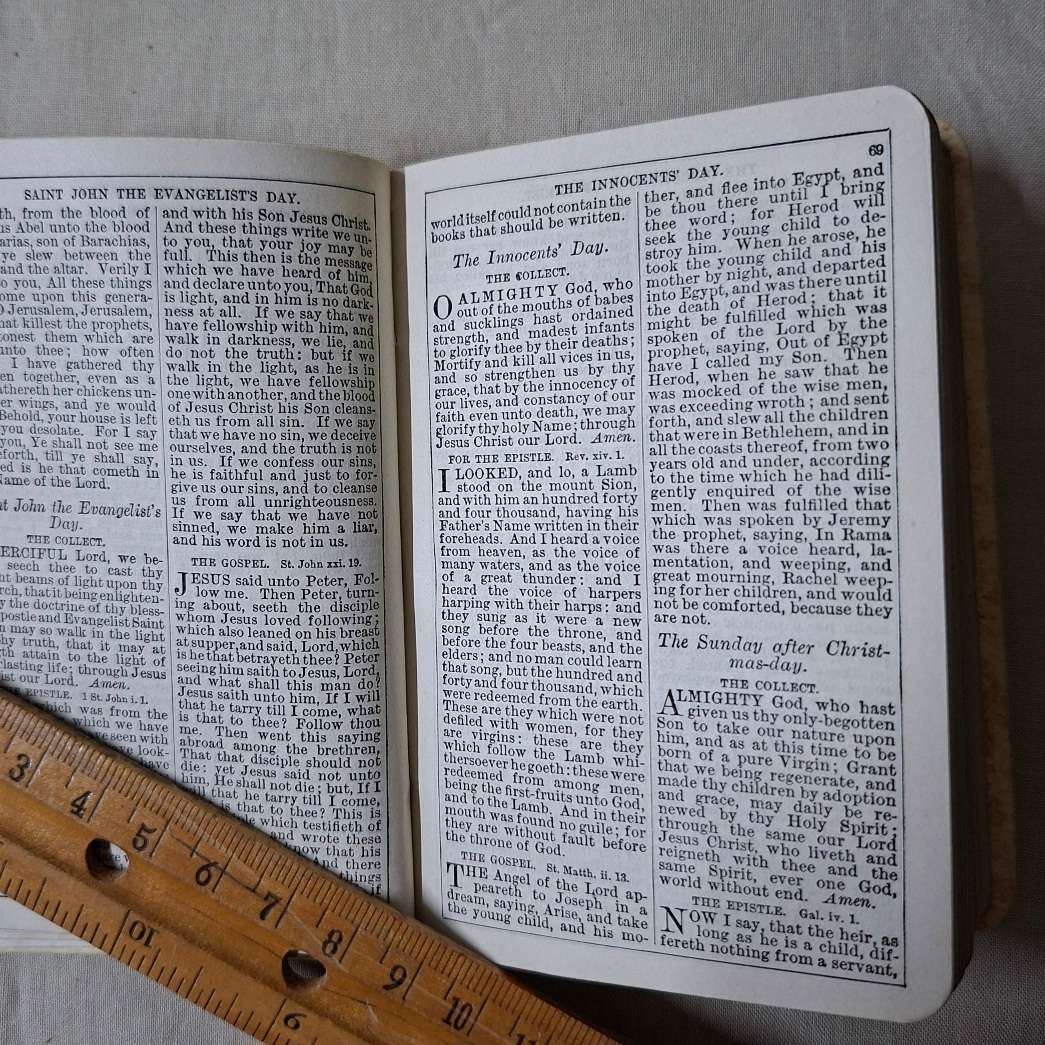 SAINT JOHN THE EVANGELIST'S DAY.
th, from the blood of
s Abel unto the blood
arias, son of Barachias,
ye slew between the
and the altar. Verily I
o you, All these things
ome upon this genera-
Jerusalem, Jerusalem,
hat killest the prophets,
tonest them which are
unto thee; how often
I have gathered thy
en together, even as a
athereth her chickens un-
er wings, and ye would
Behold, your house is left
you desolate. For I say
you, Ye shall not see me
eforth, till ye shall say,
ed is he that cometh in
Name of the Lord.
nt John the Evangelist's
Day.
THE COLLECT.
ERCIFUL Lord, we be-
seech thee to cast thy
ht beams of light upon thy
rch, that it being enlighten-
y the doctrine of thy bless-
postle and Evangelist Saint
n may so walk in the light
hy truth, that it may at
gth attain to the light of
lasting life; through Jesus
ist our Lord. Amen.
EPISTLE. 1 St. John i. 1.
which was from the
which we have
ve seen with
look-
have
and with his Son Jesus Christ.
And these things write we un-
to you, that your joy may be
full. This then is the message
which we have heard of him,
and declare unto you, That God
is light, and in him is no dark-
ness at all. If we say that we
have fellowship with him, and
walk in darkness, we lie, and
do not the truth: but if we
walk in the light, as he is in
the light, we have fellowship
one with another, and the blood
of Jesus Christ his Son cleans-
eth us from all sin. If we say
that we have no sin, we deceive
ourselves, and the truth is not
in us. If we confess our sins,
he is faithful and just to for-
give us our sins, and to cleanse
us from all unrighteousness.
If we say that we have not
sinned, we make him a liar,
and his word is not in us.
THE GOSPEL. St. John xxi. 19.
JESUS said unto Peter, Fol-
low me. Then Peter, turn-
ing about, seeth the disciple
whom Jesus loved following;
which also leaned on his breast
at supper, and said, Lord, which
is he that betrayeth thee? Peter
seeing him saith to Jesus, Lord,
and what shall this man do?
Jesus saith unto him, If I will
that he tarry till I come, what
is that to thee? Follow thou
me. Then went this saying
abroad among the brethren,
That that disciple should not
die: yet Jesus said not unto
him, He shall not die; but, If I
will that he tarry till I come,
is that to thee? This is
which testifieth of
and wrote these
now that his
And there
things
if
69
THE INNOCENTS' DAY.
world itself could not contain the
books that should be written.
The Innocents' Day.
THE COLLECT.
O ALMIGHTY God, who
out of the mouths of babes
and sucklings hast ordained
strength, and madest infants
to glorify thee by their deaths;
Mortify and kill all vices in us,
and so strengthen us by thy
grace, that by the innocency of
our lives, and constancy of our
faith even unto death, we may
glorify thy holy Name; through
Jesus Christ our Lord. Amen.
FOR THE EPISTLE. Rev. xiv. 1.
I LOOKED, and lo, a Lamb
stood on the mount Sion,
and with him an hundred forty
and four thousand, having his
Father's Name written in their
foreheads. And I heard a voice
from heaven, as the voice of
many waters, and as the voice
of a great thunder: and I
heard the voice of harpers
harping with their harps: and
they sung as it were a new
song before the throne, and
before the four beasts, and the
elders; and no man could learn
that song, but the hundred and
forty and four thousand, which
were redeemed from the earth.
These are they which were not
defiled with women, for they
are virgins: these are they
which follow the Lamb whi-
thersoever he goeth: these were
redeemed from among men,
being the first-fruits unto God,
and to the Lamb. And in their
mouth was found no guile; for
they are without fault before
the throne of God.
THE GOSPEL. St. Matth. ii. 13.
THE Angel of the Lord ap-
peareth to Joseph in a
dream, saying, Arise, and take
the young child, and his mo-
ther, and flee into Egypt, and
be thou there until I bring
thee word; for Herod will
seek the young child to de-
stroy him. When he arose, he
took the young child and his
mother by night, and departed
into Egypt, and was there until
the death of Herod; that it
might be fulfilled which was
spoken of the Lord by the
prophet, saying, Out of Egypt
have I called my Son. Then
Herod, when he saw that he
was mocked of the wise men,
was exceeding wroth; and sent
forth, and slew all the children
that were in Bethlehem, and in
all the coasts thereof, from two
years old and under, according
to the time which he had dili-
gently enquired of the wise
men. Then was fulfilled that
which was spoken by Jeremy
the prophet, saying, In Rama
was there a voice heard, la-
mentation, and weeping, and
great mourning, Rachel weep-
ing for her children, and would
not be comforted, because they
are not.
The Sunday after Christ-
mas-day.
THE COLLECT.
ALMIGHTY God, who hast
given us thy only-begotten
Son to take our nature upon
him, and as at this time to be
born of a pure Virgin; Grant
that we being regenerate, and
made thy children by adoption
and grace, may daily be re-
newed by thy Holy Spirit;
through the same our Lord
Jesus Christ, who liveth and
reigneth with thee and the
same Spirit, ever one God,
world without end. Amen.
THE EPISTLE. Gal. iv. 1.
NOW I say, that the heir, as
long as he is a child, dif-
fereth nothing from a servant,
3 4 5 6 7 8 9 10 11
10 6